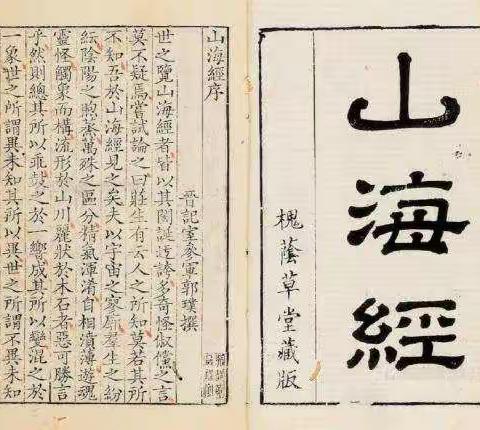 山海經
槐蔭草堂藏版
山海經序
晉記室參軍郭璞撰
世之覽山海經者皆以其閎誕迂誇多奇怪俶儻之言
莫不疑焉嘗試論之曰莊生有云人之所知莫若其所
不知吾於山海經見之矣夫以宇宙之寥廓羣生之紛
紜陰陽之煦蒸萬殊之區分精氣渾淆自相濆薄遊魂
靈怪觸象而構流形於山川麗狀於木石者惡可勝言
乎然則總其所以乖鼓之於一響成其所以變混之於
一象世之所謂異未知其所以異世之所謂不異未知